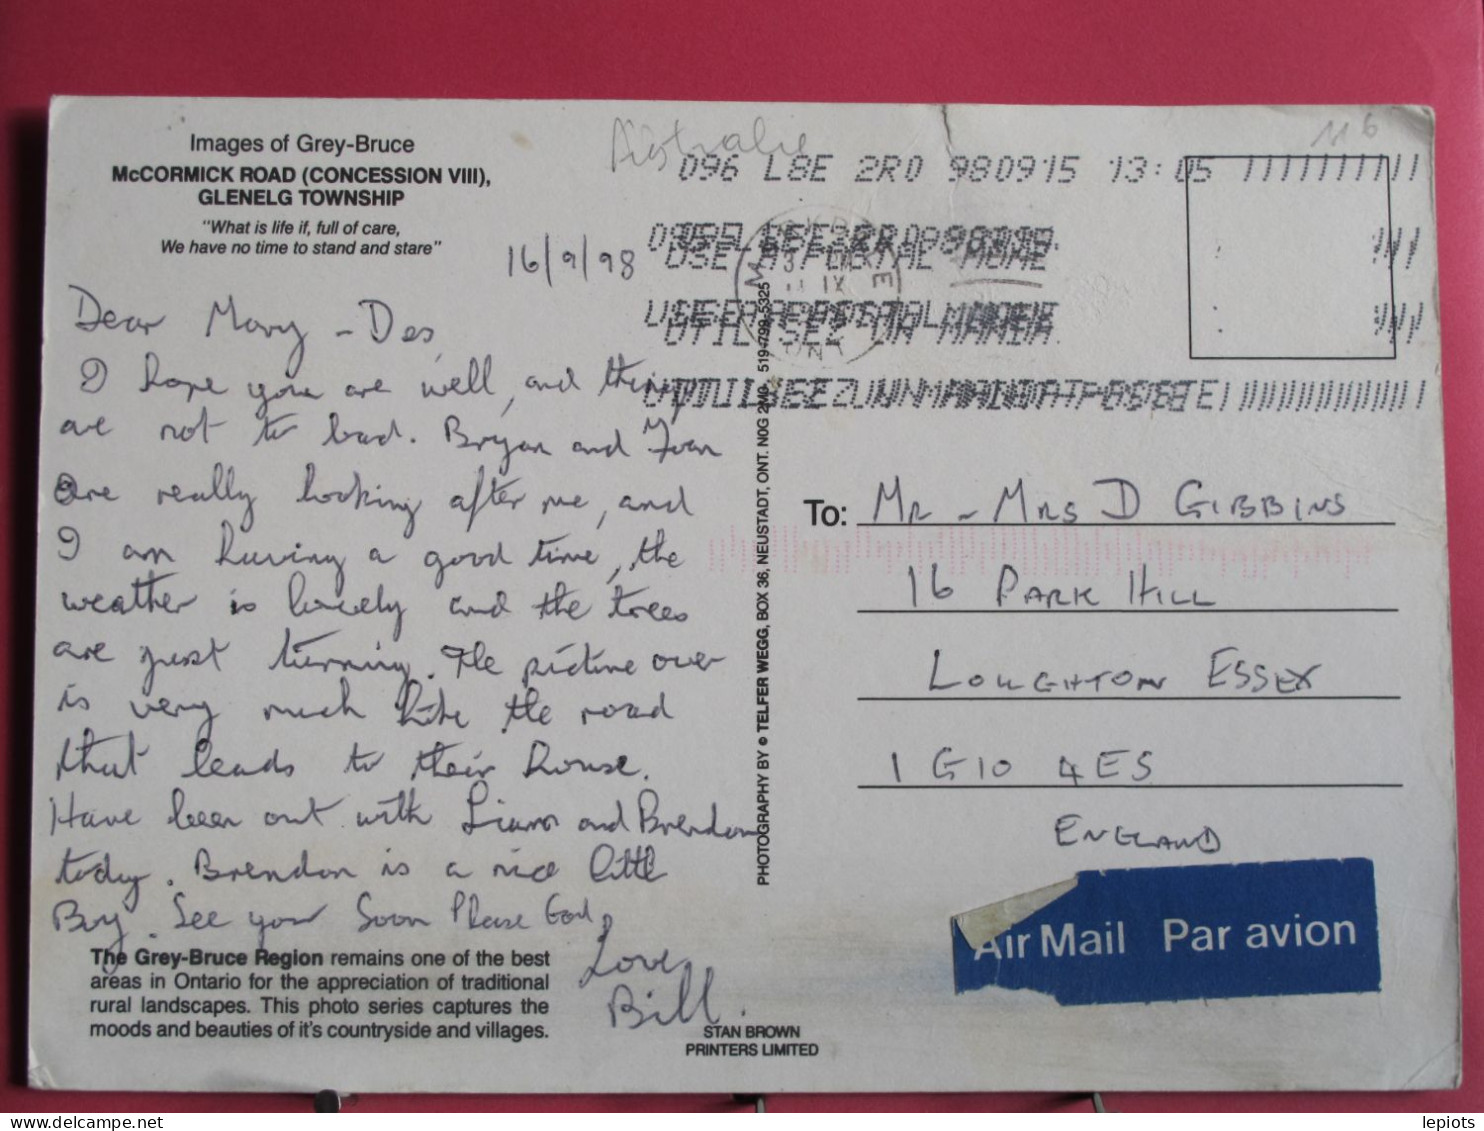 Images of Grey-Bruce
McCORMICK ROAD (CONCESSION VIII),
GLENELG TOWNSHIP
"What is life if, full of care,
We have no time to stand and stare"
16/9/98
Dear Mary - Des,
I hope you are well, and things
are not to bad. Bryan and
are really looking after me, and
I am having a good time, the
weather is lovely and the trees
are just turning. The picture over
is very much like the road
that leads to their house.
Have been out with and Brendon
today. Brendon is a nice little
Boy. See you Soon Please God,
Love,
Bill.
The Grey-Bruce Region remains one of the best
areas in Ontario for the appreciation of traditional
rural landscapes. This photo series captures the
moods and beauties of it's countryside and villages.
STAN BROWN
PRINTERS LIMITED
PHOTOGRAPHY BY © TELFER WEGG, BOX 36, NEUSTADT, ONT. N0G 2M0 519-799-5325
Australie
116
096 L8E 2R0 980915 13:05
To: MR - MRS D GIBBINS
16 PARK HILL
LOUGHTON ESSEX
1G10 4ES
ENGLAND
Air Mail Par avion
delcampe.net
lepiots